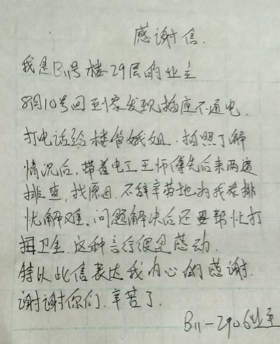 感谢信.
我是B11号楼29层的业主
8月10号回到家发现插座不通电.
打电话给楼管娥姐. 拍照了解
情况后, 带着电工王师傅先后来两趟
排查, 找原因, 不辞辛苦地为我家排
忧解难. 问题解决后还要帮忙打
扫卫生. 这种言行很是感动.
特以此信表达我内心的感谢.
谢谢你们. 辛苦了.
B11-2906业主